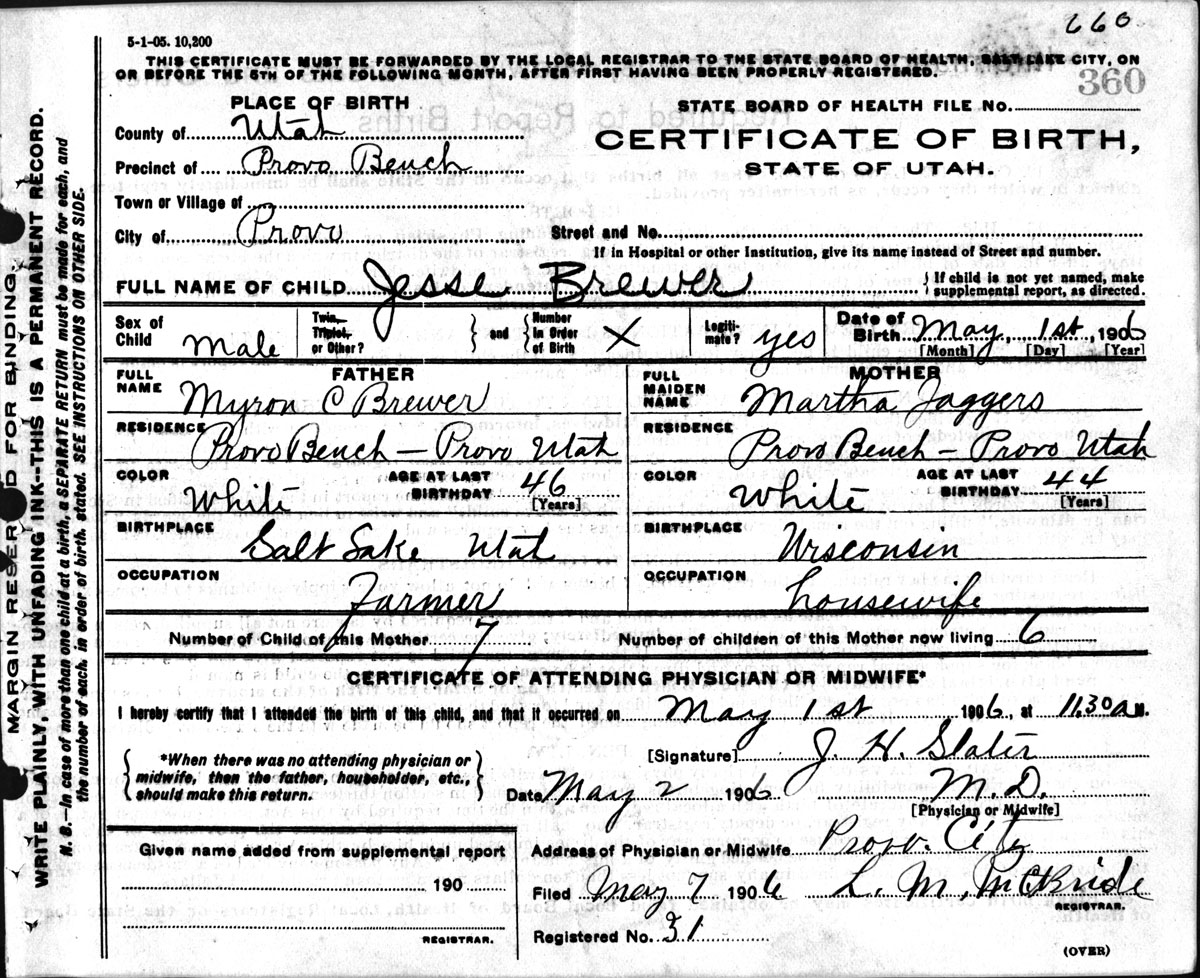 660
5-1-05. 10,200
THIS CERTIFICATE MUST BE FORWARDED BY THE LOCAL REGISTRAR TO THE STATE BOARD OF HEALTH, SALT LAKE CITY, ON
OR BEFORE THE 5TH OF THE FOLLOWING MONTH, AFTER FIRST HAVING BEEN PROPERLY REGISTERED.
360
PLACE OF BIRTH
STATE BOARD OF HEALTH FILE NO.
County of Utah
CERTIFICATE OF BIRTH,
Precinct of Provo Bench
STATE OF UTAH.
Town or Village of
City of Provo
Street and No.
If in Hospital or other Institution, give its name instead of Street and number.
FULL NAME OF CHILD Jesse Brewer
{ If child is not yet named, make
supplemental report, as directed.
Sex of Child Male
Twin, Triplet, or Other? } and { Number in Order of Birth X
Legiti-mate? yes
Date of Birth May 1st, 1906
[Month] [Day] [Year]
FATHER
FULL NAME Myron C Brewer
RESIDENCE Provo Bench — Provo Utah
COLOR White
AGE AT LAST BIRTHDAY 46 [Years]
BIRTHPLACE Salt Lake Utah
OCCUPATION Farmer
MOTHER
FULL MAIDEN NAME Martha Jaggers
RESIDENCE Provo Bench — Provo Utah
COLOR White
AGE AT LAST BIRTHDAY 44 [Years]
BIRTHPLACE Wisconsin
OCCUPATION housewife
Number of Child of this Mother 7
Number of children of this Mother now living 6
CERTIFICATE OF ATTENDING PHYSICIAN OR MIDWIFE*
I hereby certify that I attended the birth of this child, and that it occurred on May 1st 1906, at 11.30 a M.
{ *When there was no attending physician or
midwife, then the father, householder, etc.,
should make this return. }
[Signature] J. H. Slater
Date May 2 1906 M. D.
[Physician or Midwife]
Given name added from supplemental report
190
REGISTRAR.
Address of Physician or Midwife Provo. City
Filed May 7 1906 L. M. McBride
REGISTRAR.
Registered No. 31
(OVER)
MARGIN RESERVED FOR BINDING.
WRITE PLAINLY, WITH UNFADING INK--THIS IS A PERMANENT RECORD.
N. B.—In case of more than one child at a birth, a SEPARATE RETURN must be made for each, and
the number of each, in order of birth, stated. SEE INSTRUCTIONS ON OTHER SIDE.